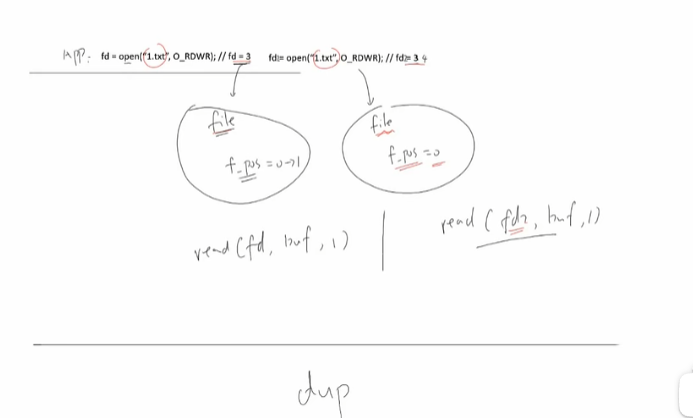 APP: fd = open("1.txt", O_RDWR); // fd = 3 fd2= open("1.txt", O_RDWR); // fd2= 3 4
file file
f_pos = 0→1 f_pos = 0
read (fd, buf, 1) read (fd2, buf, 1)
dup